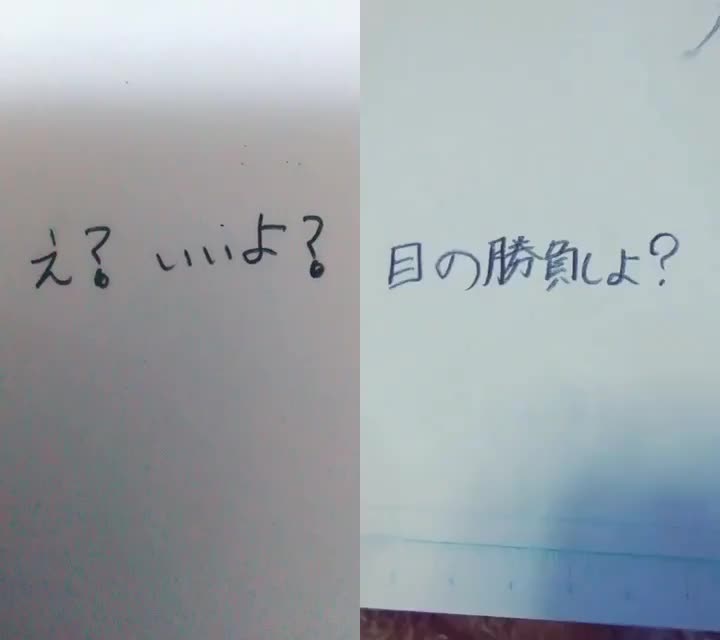 え? いいよ?
目の勝負しよ?